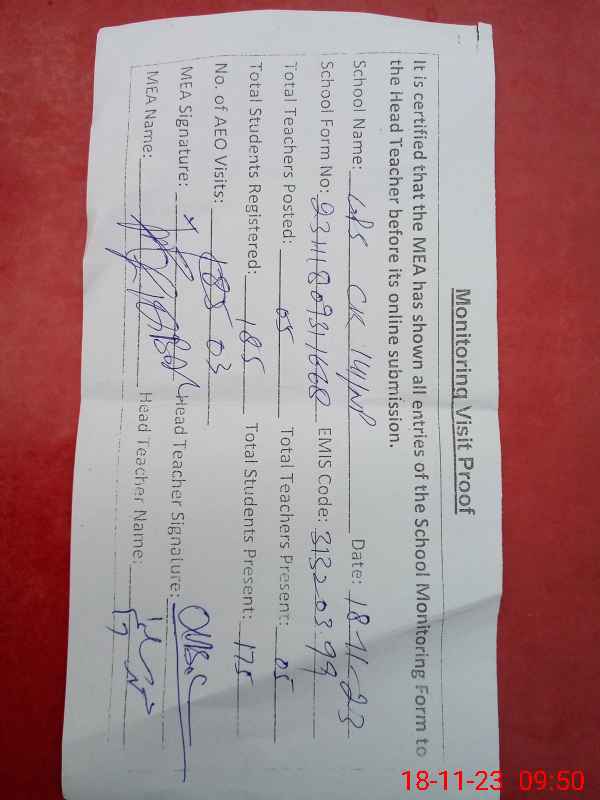 Monitoring Visit Proof
It is certified that the MEA has shown all entries of the School Monitoring Form to
the Head Teacher before its online submission.
School Name: CK 141/NP Date: 18-11-23
School Form No: EMIS Code: 313203.99
Total Teachers Posted: 05 Total Teachers Present: 05
Total Students Registered: 185 Total Students Present: 175
No. of AEO Visits: 03
MEA Signature: Head Teacher Signature:
MEA Name: Head Teacher Name:
18-11-23 09:50